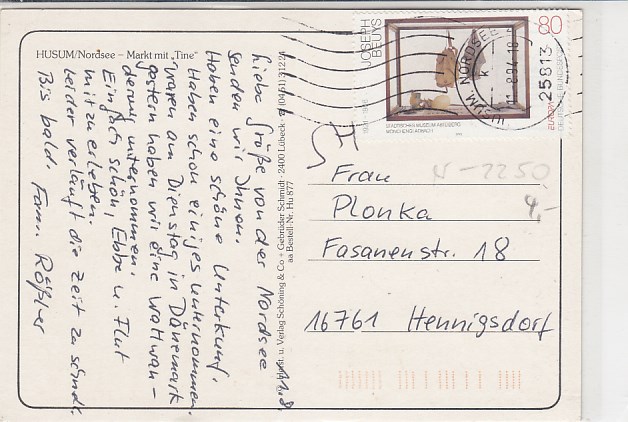 HUSUM/Nordsee – Markt mit „Tine"
11.8.
Liebe Grüße von der Nordsee
senden wir Ihnen.
Haben eine schöne Unterkunft.
Haben schon einiges unternommen,
waren am Dienstag in Dänemark
gestern haben wir eine Wattwan-
derung unternommen.
Einfach schön, Ebbe u. Flut
mitzuerleben.
Leider verläuft die Zeit zu schnell.
Bis bald. Fam. Rößler
Kunst u. Verlag Schöning & Co + Gebrüder Schmidt · 2400 Lübeck · (0451) 31224
aa Bestell-Nr. Hu 877
JOSEPH BEUYS
80
EUROPA
DEUTSCHE BUNDESPOST
STÄDTISCHES MUSEUM ABTEIBERG
MÖNCHENGLADBACH
HUSUM, NORDSEE
k
25813
N-2250
4,-
Frau
Plonka
Fasanenstr. 18
16761 Hennigsdorf